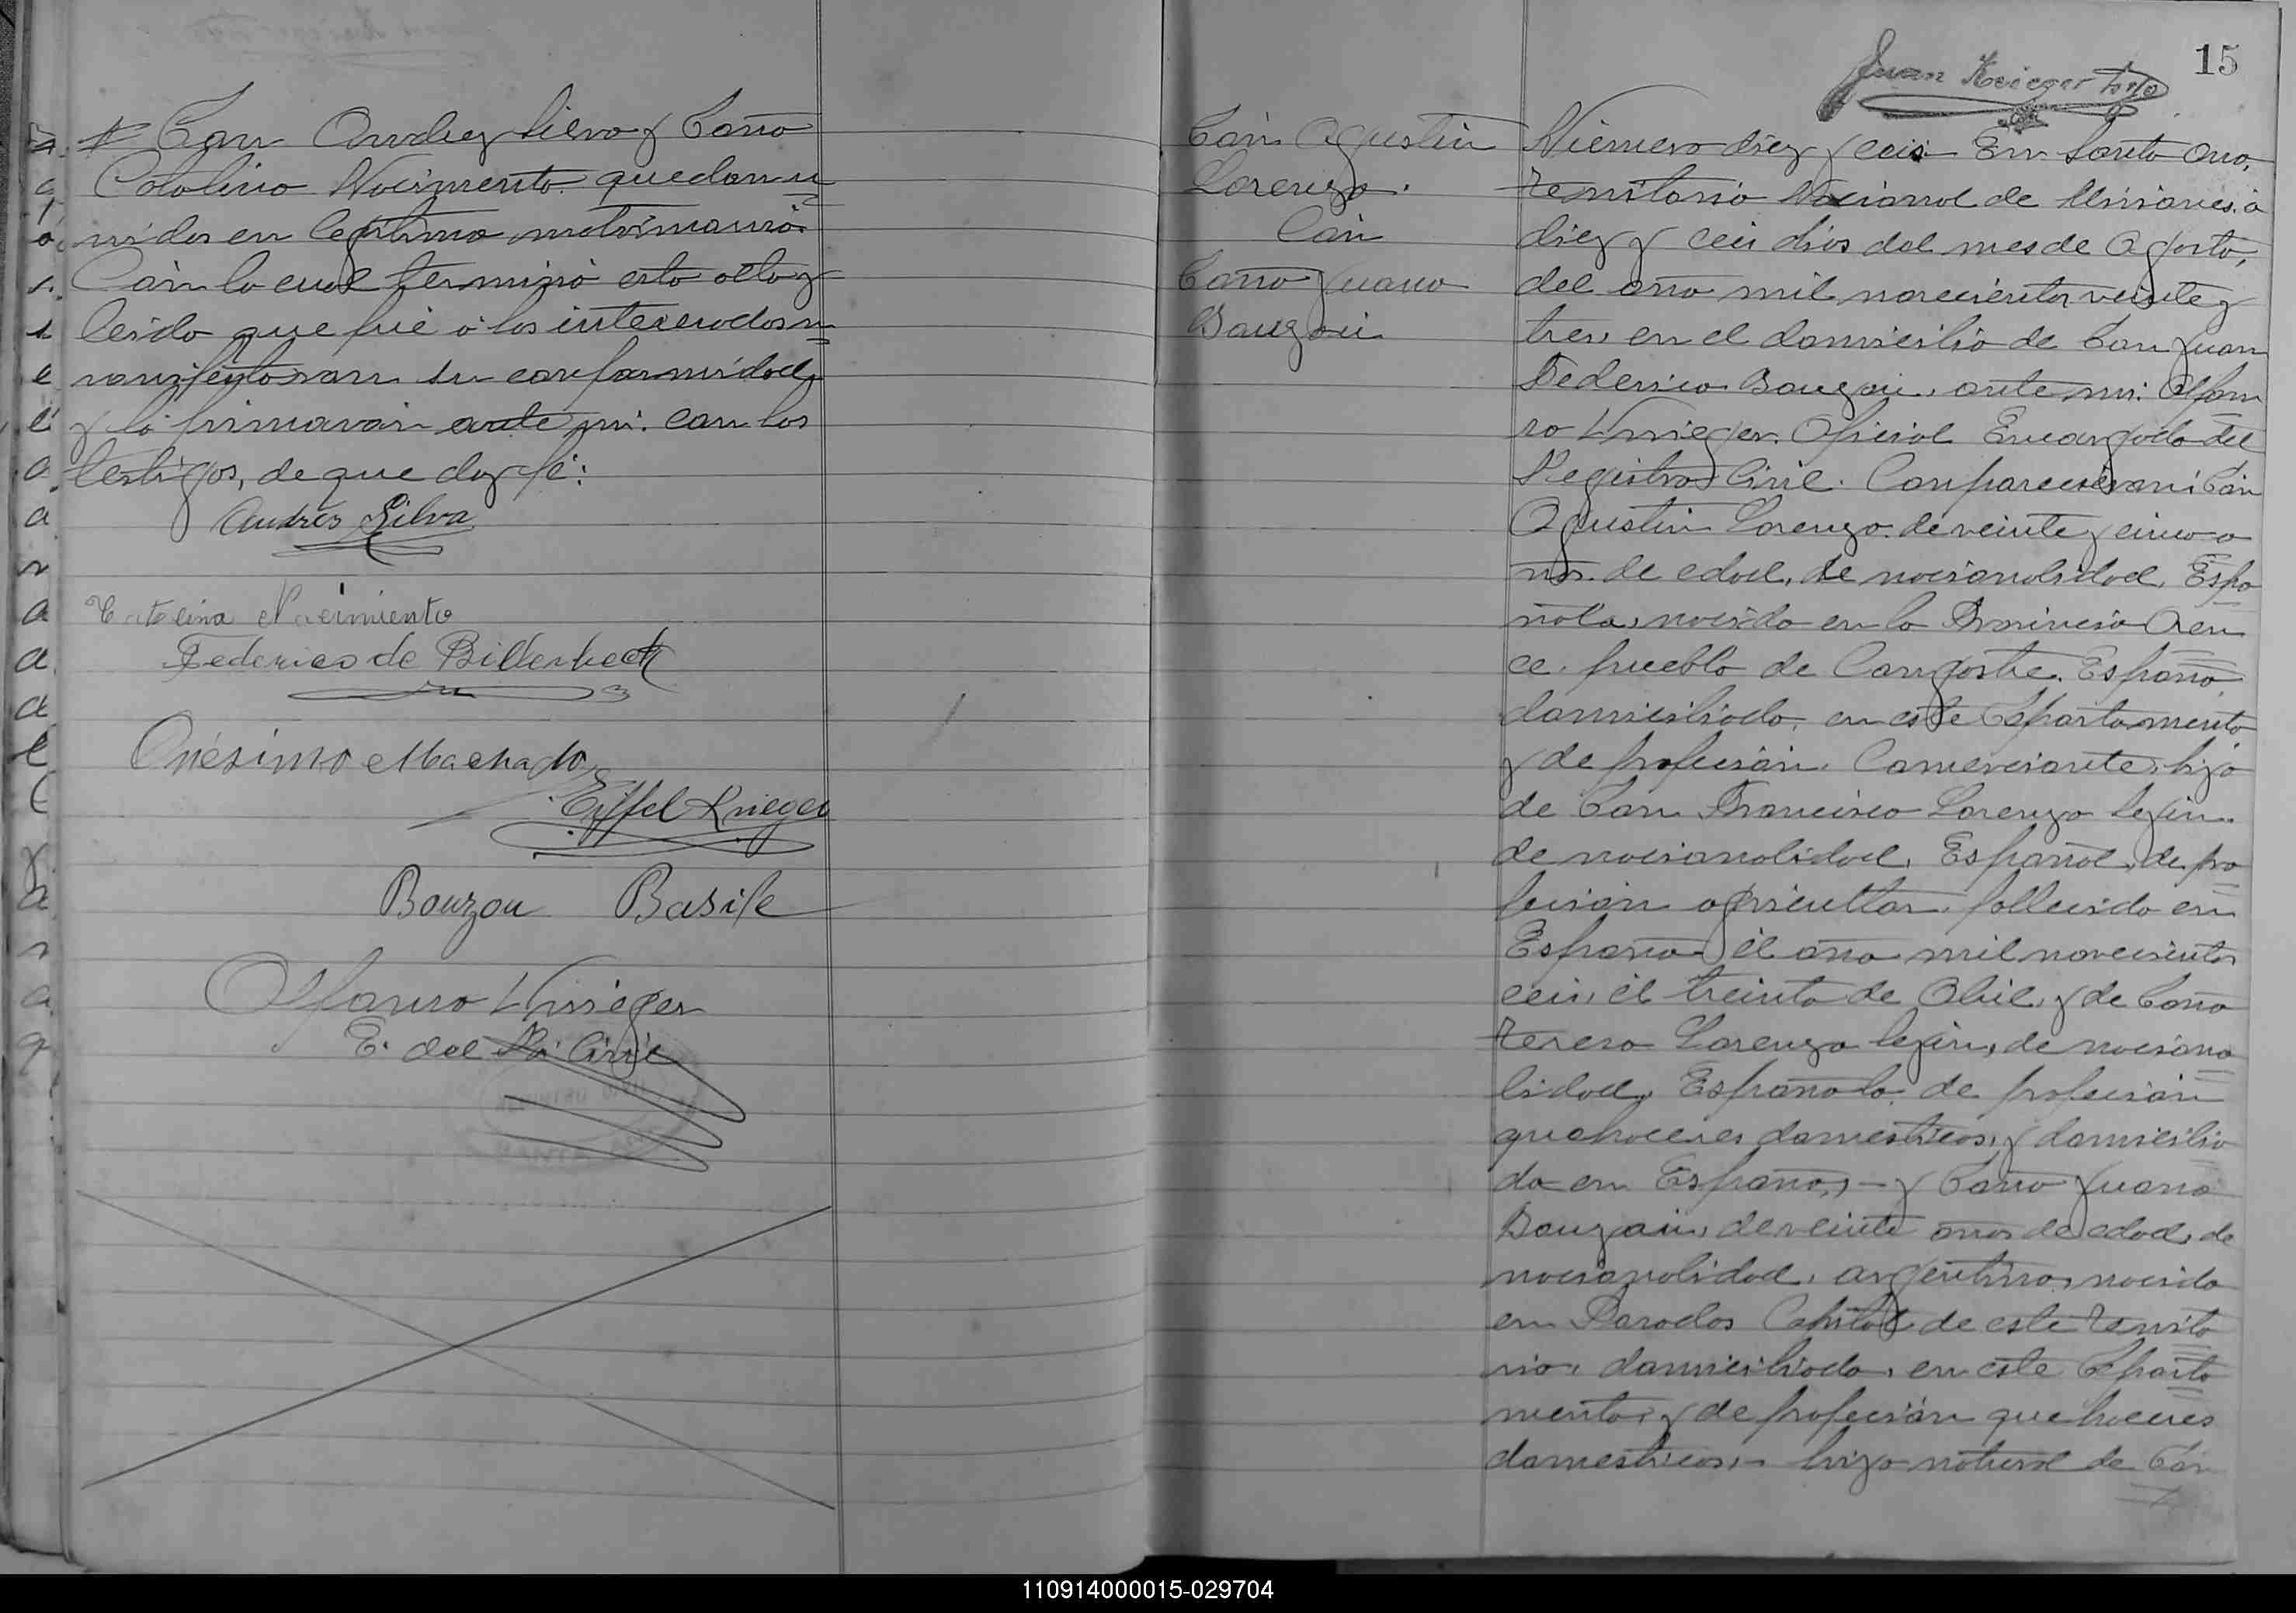 Don Andrez Silva y Doña
Catalina Nacimento quedan u
nidos en legítimo matrimonio
Con lo cual terminó esta acta y
leida que fué á los interezados m
manifestaron su conformidad,
y la firmaron ante mi: con los
testigos, de que doy fé:
Andrés Silva
Catalina Nacimiento
Federico de Billerbeck
Onésimo Machado
Eiffel Krieger
Bouzon Basile
Alfonso Krieger
E. del R. Civil
15
Juan Krieger
Don Agustin
Lorenzo.
Con
Doña Juana
Bauzon
Número diez y ceis En Santa Ana,
territorio Nacional de Misiones, á
diez y ceis dias del mes de Agosto,
del año mil novecientos veinte y
tres, en el domicilio de Don Juan
Federico Bouzon, ante mi: Alfon
so Krieger. Oficial Encargado del
Registro Civil. Comparecieron: Don
Agustin Lorenzo de veinte y cinco a
ños. de edad, de nacionalidad, Espa
ñola, nacido en la Provincia Oren
ce. pueblo de España
domiciliado, en este Departamento
y de profecion, Comerciante, hijo
de Don Francisco Lorenzo
de nacionalidad, Español, de pro
fecion agricultor, fallecido en
España él año mil novecientos
ceis, él treinta de Abril, y de Doña
tereza Lorenzo de naciona
lidad, Española, de profecion
quehaceres domesticos, y domicilia
da en España, - y Doña Juana
Bouzon, de veinte años de edad, de
nacionalidad, argentina, nacida
en Posadas Capital de este Territo
rio, domiciliada, en este Departa
mento, y de profecion quehaceres
domesticos, - hija natural de Don
110914000015-029704